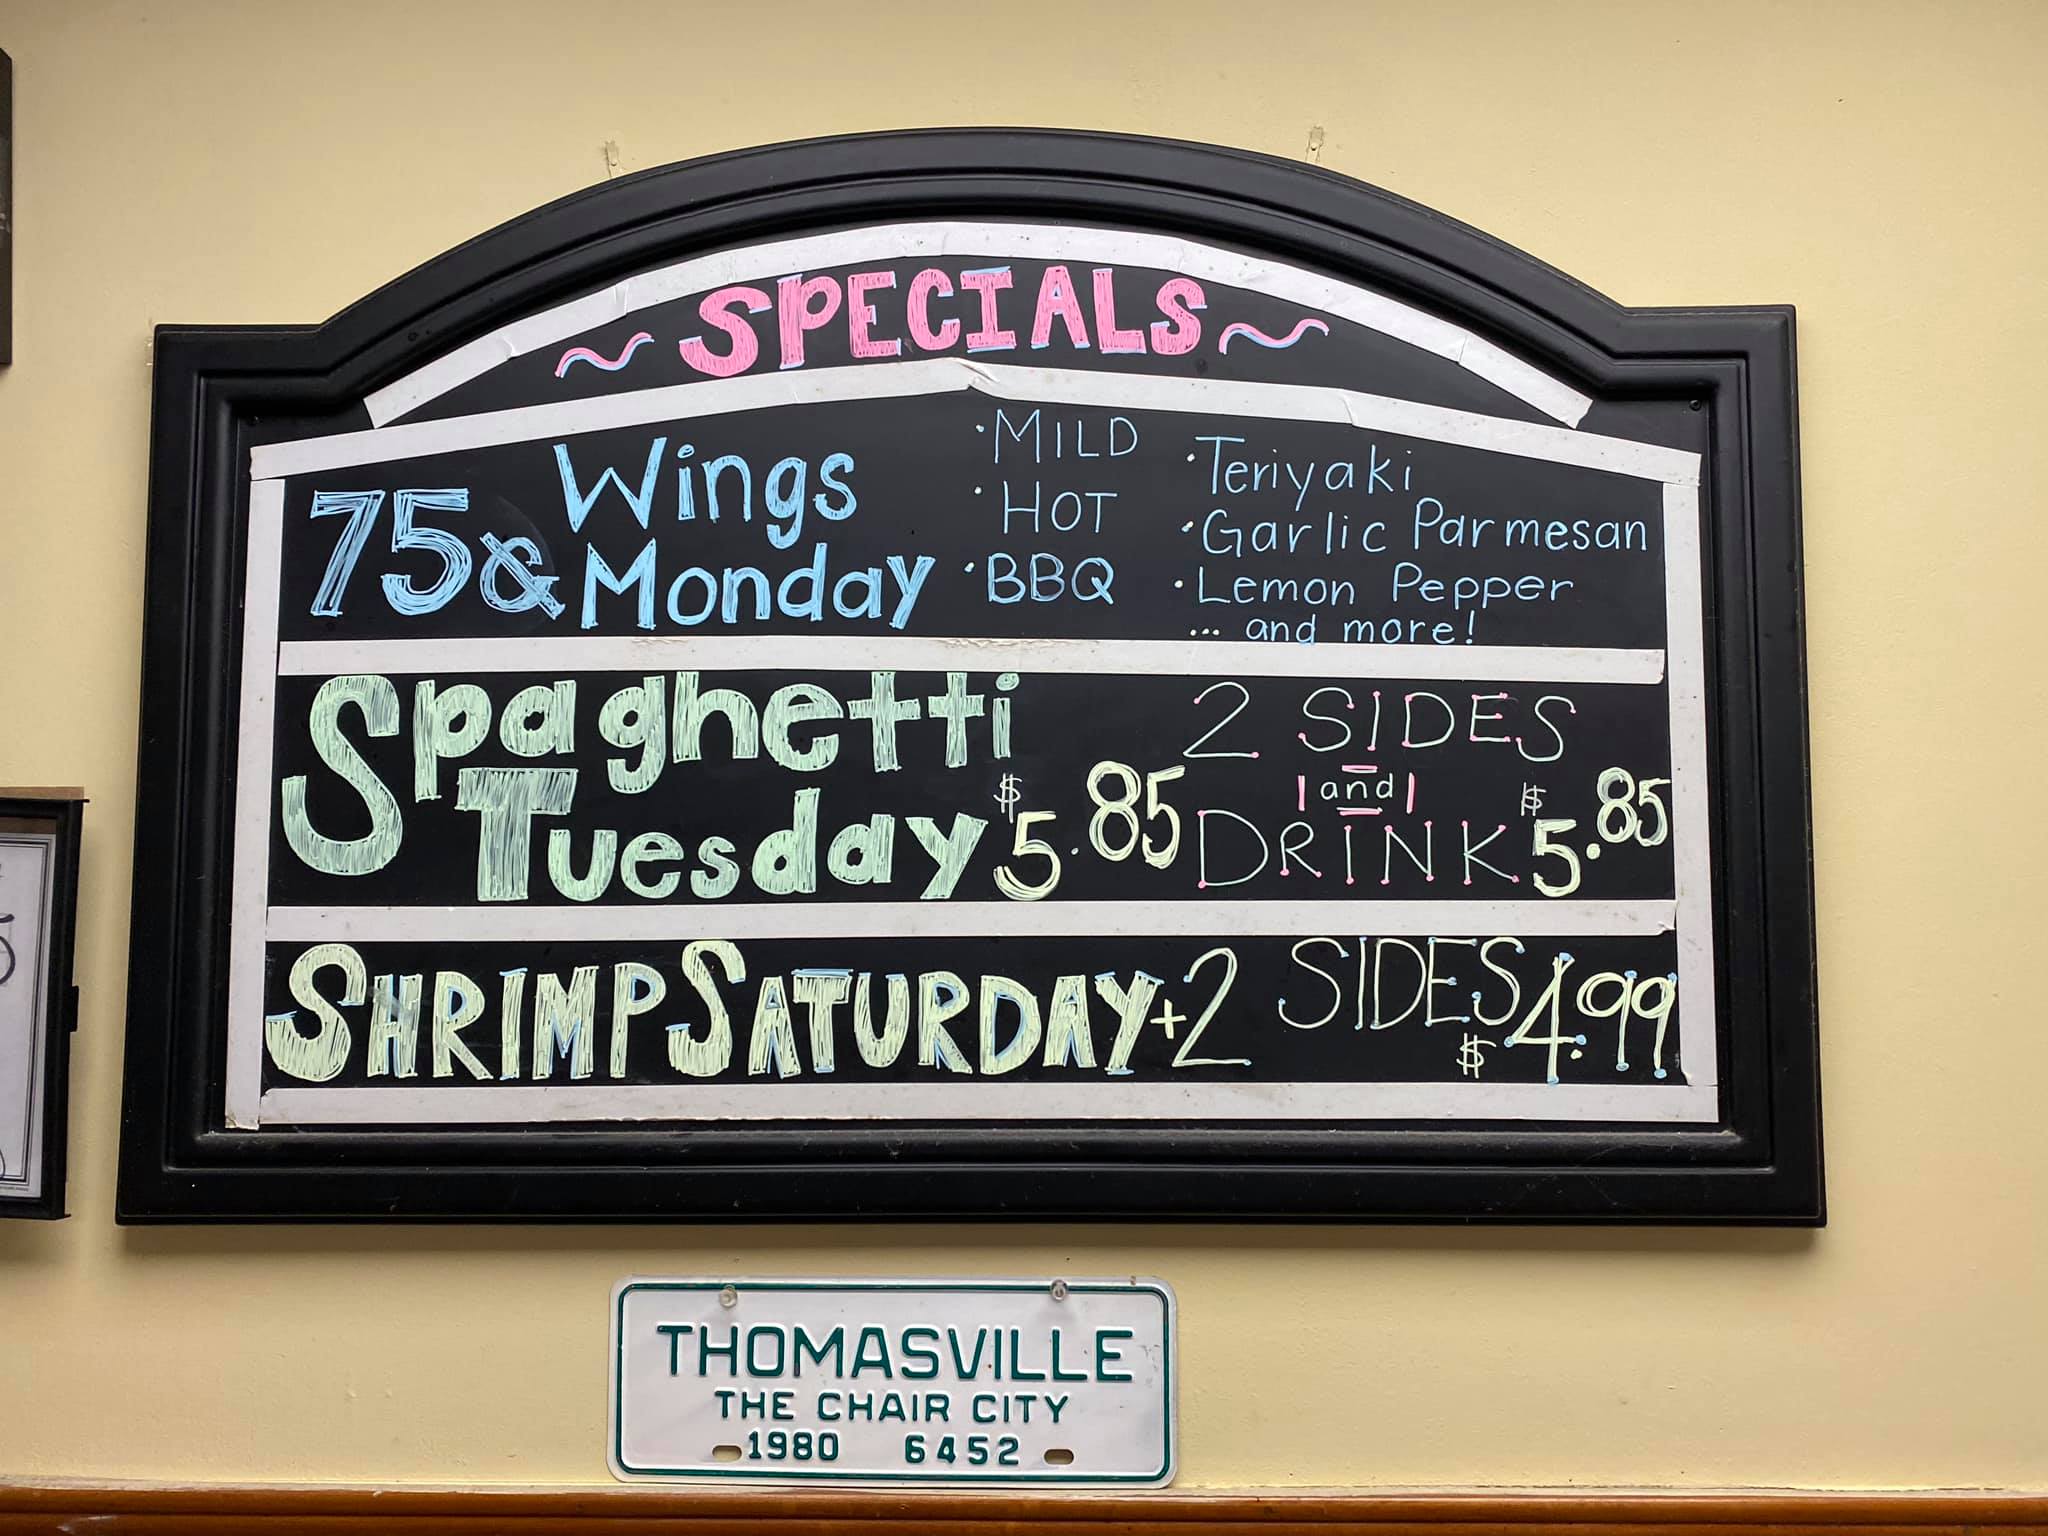 ~ SPECIALS ~
75¢ Wings Monday
· MILD
· HOT
· BBQ
· Teriyaki
· Garlic Parmesan
· Lemon Pepper
... and more!
Spaghetti
Tuesday $5.85
2 SIDES
and
DRINK $5.85
SHRIMP SATURDAY + 2 SIDES $4.99
THOMASVILLE
THE CHAIR CITY
1980 6452